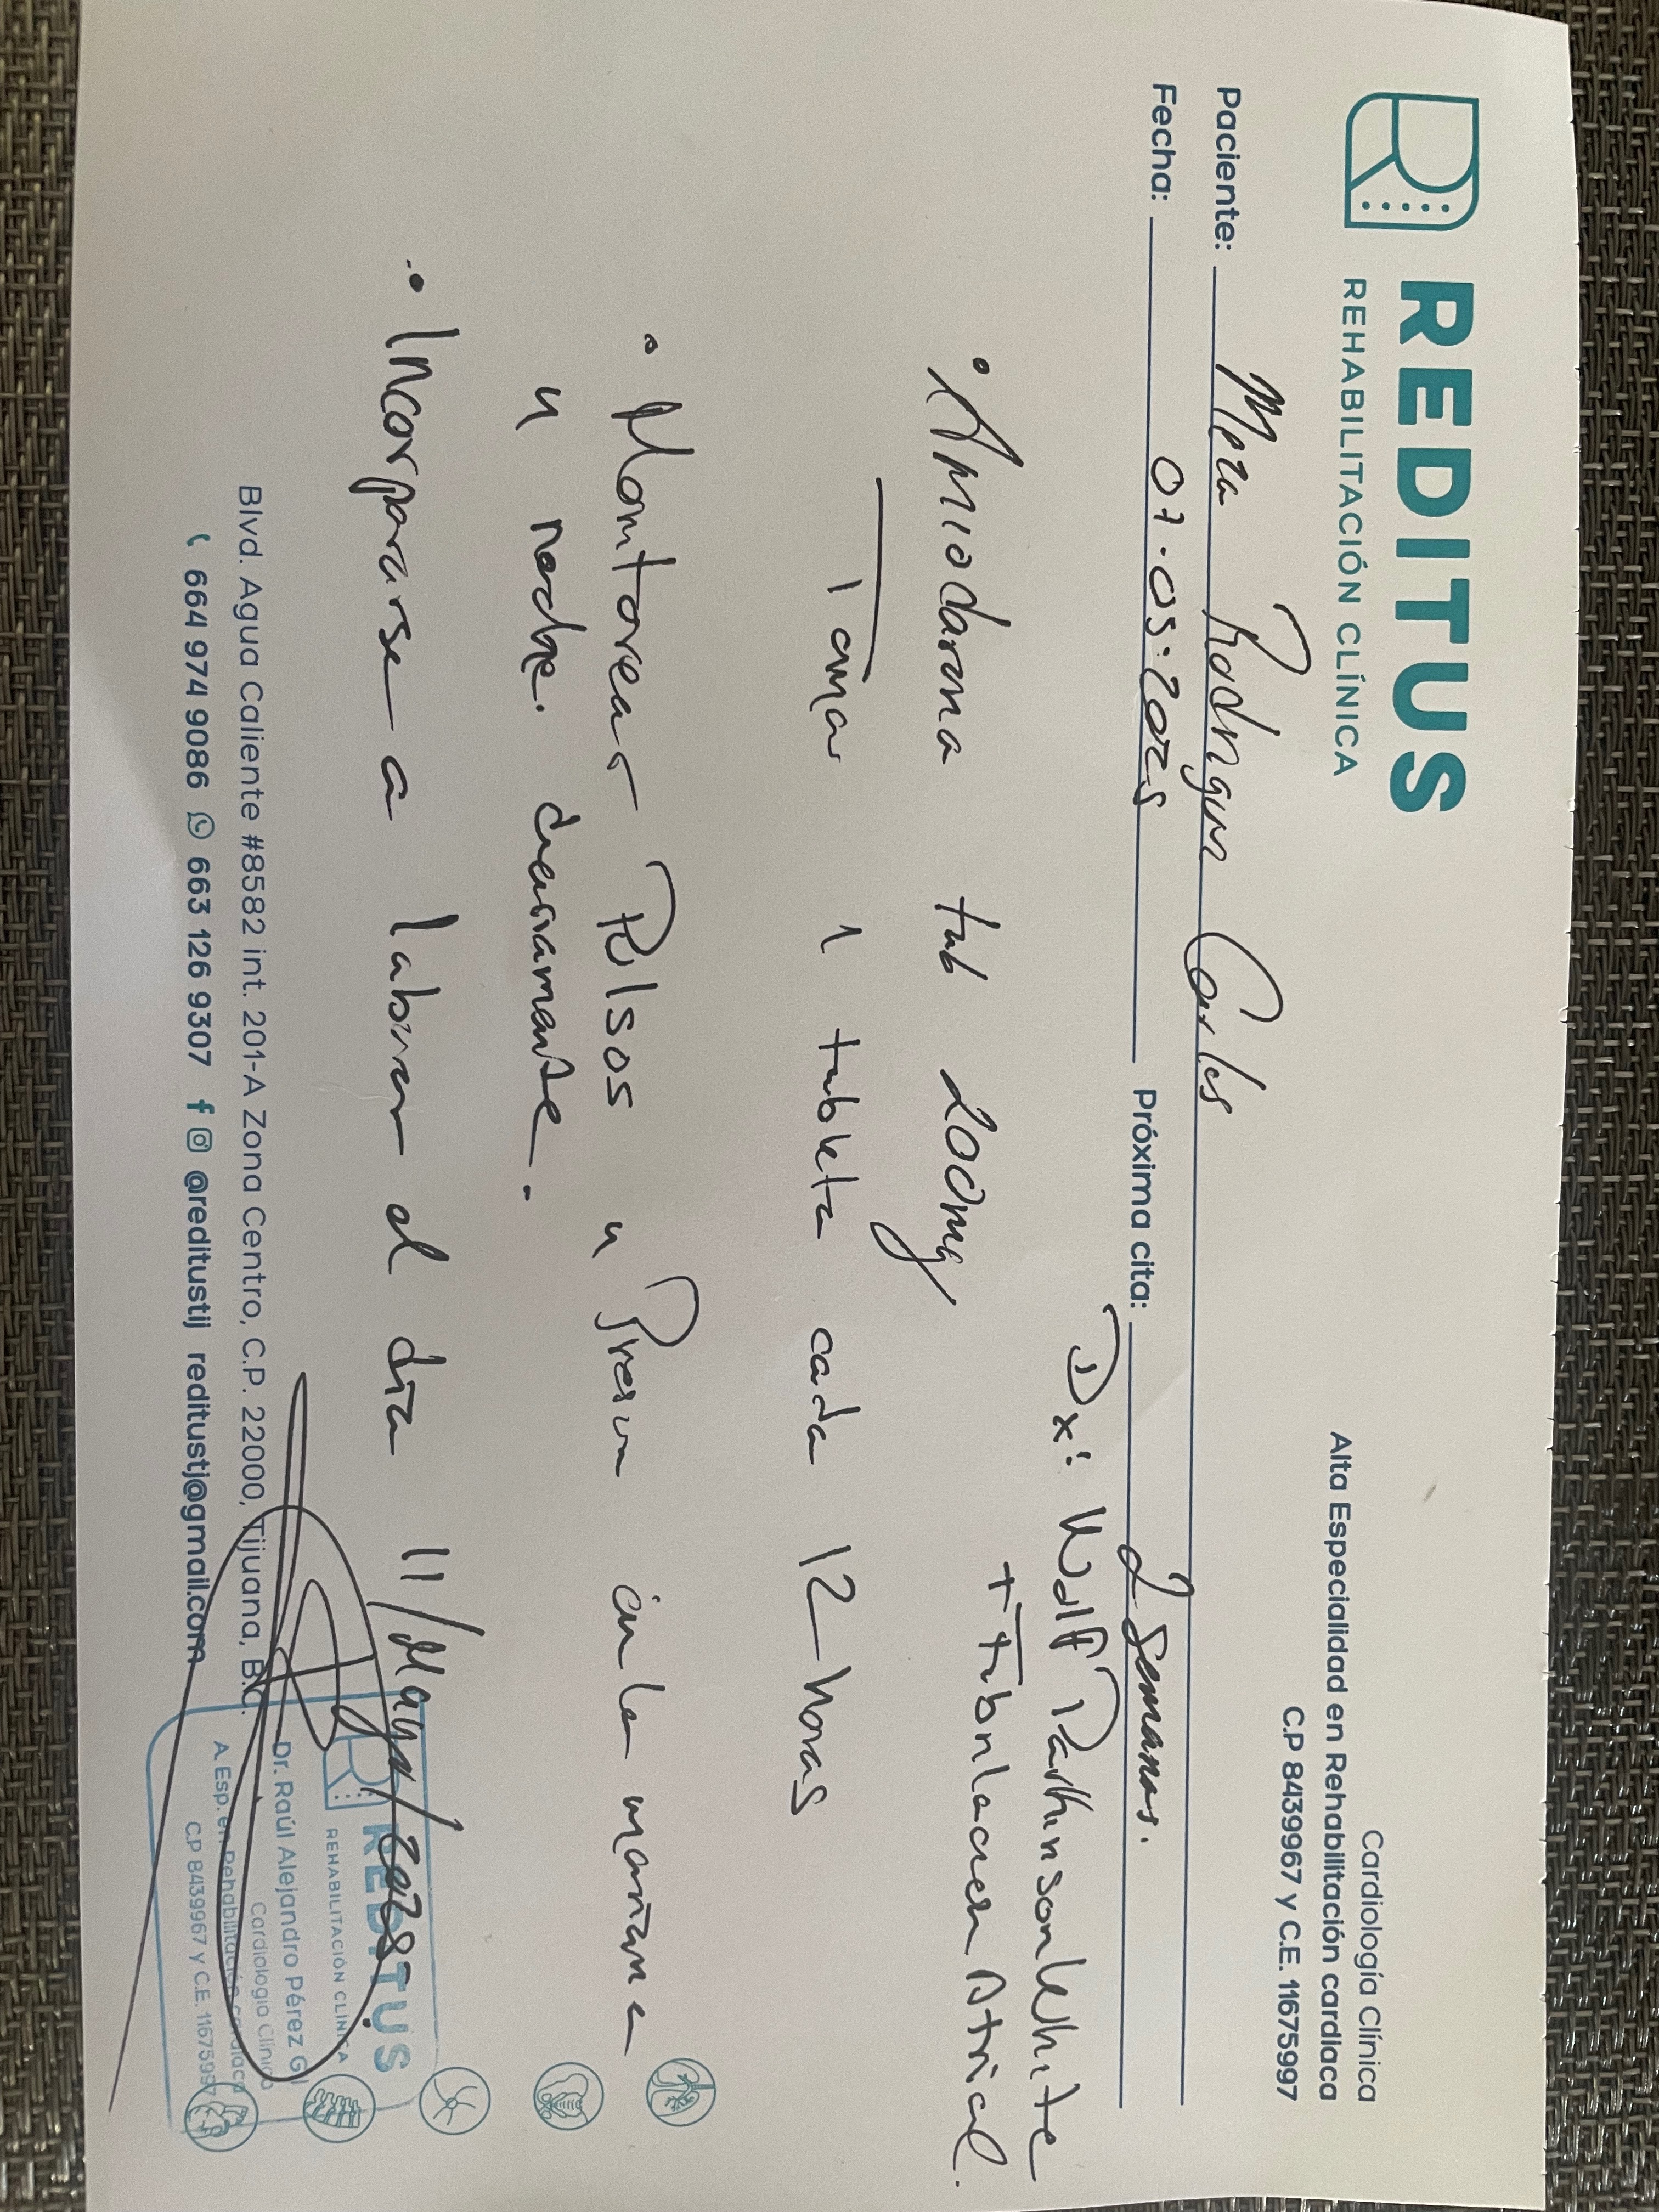 REDITUS
REHABILITACIÓN CLÍNICA
Cardiología Clínica
Alta Especialidad en Rehabilitación cardiaca
C.P 8439967 y C.E. 11675997
Paciente: Meza Rodriguez Carlos
Fecha: 07.05.2025 Próxima cita: 2 Semanas.
Dx: Wolff Parkinson White
+ Fibrilacion Atrial.
• Amiodarona tab 200mg
Tomar 1 tableta cada 12 horas
• Monitorear Pulsos y Presion en la mañana
y noche. diariamente.
• Incorporarse a laborar el dia 11/Mayo/2025
REDITUS
REHABILITACIÓN CLÍNICA
Dr. Raúl Alejandro Pérez
Cardiología Clínica
A. Esp. en Rehabilitación cardiaca
C.P 8439967 y C.E. 11675997
Blvd. Agua Caliente #8582 int. 201-A Zona Centro, C.P. 22000, Tijuana, B.C.
664 974 9086 663 126 9307 @reditustij reditustj@gmail.com